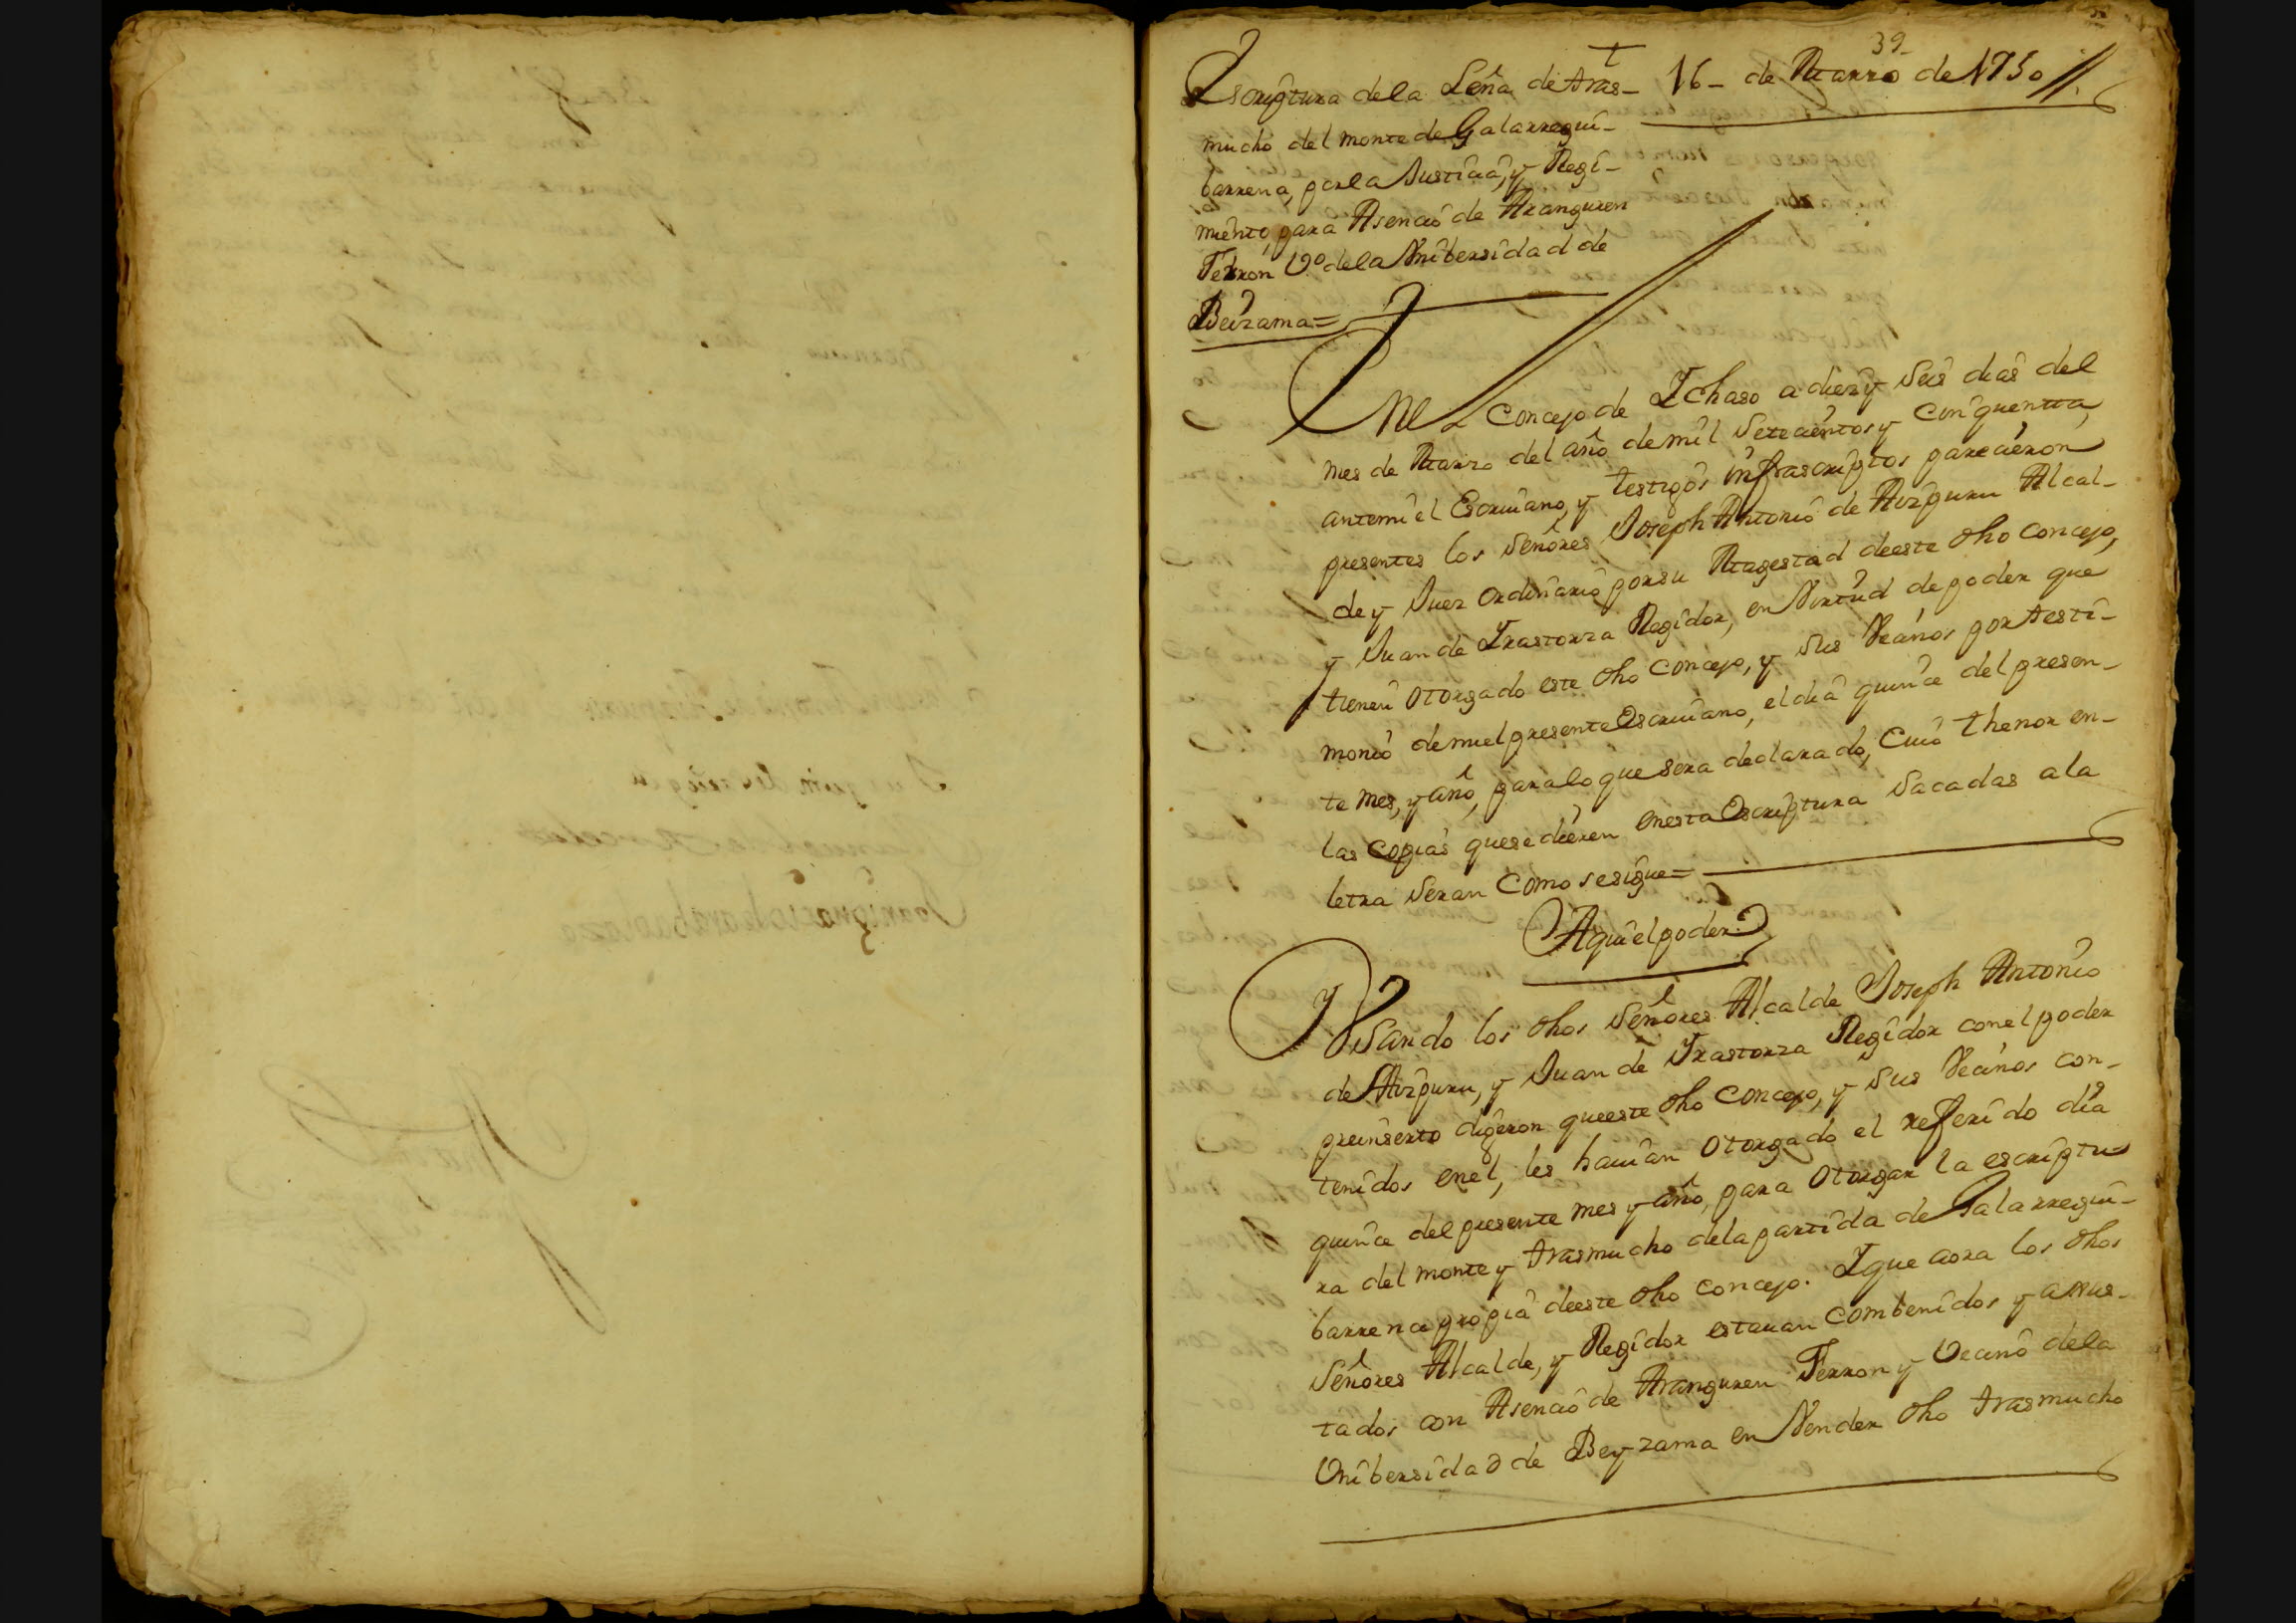 39
Escriptura dela Leña de tras- 16- de Marzo de 1750 //.
mucho del monte de Galarregui-
barrena, por la Justicia, y Regi-
miento, para Asencio de Aranguren
Ferron Vº dela Unibersidad de
Beizama=
En el Concejo de Ychaso a diez y seis dias del
mes de Marzo del año de mil Setecientos y Cinquenta
antemi el Escriuano, y testigos infrascriptos parecieron
presentes los Señores Joseph Antonio de Aizpuru Alcal-
de y Juez ordinario por su Magestad deeste dho Concejo,
y Juan de Yrastorza Regidor, en Virtud de poder que
tienen otorgado este dho Concejo, y sus Vecinos por testi-
monio demi el presente Escriuano, el dia quince del presen-
te mes, y año, para lo que sera declarado, Cuio thenor en-
las Copias que se dieren enesta Escriptura Sacadas a la
letra Seran Como se sigue=
Aqui el poder
Y Usando los dhos Señores Alcalde Joseph Antonio
de Aizpuru, y Juan de Yrastorza Regidor con el poder
preinserto digeron queeste dho Concejo, y Sus Vecinos con-
tenidos enel, les hauian Otorgado el refferido dia
quince del presente mes y año, para Otorgar la escriptu-
ra del monte y trasmucho dela partida de Galarregui-
barrena propia deeste dho Concejo. Y que aora los dhos
Señores Alcalde, y Regidor estauan Combenidos y ajus-
tados con Asencio de Aranguren Ferron y Vecino dela
Unibersidad de Beyzama en Vender dho trasmucho